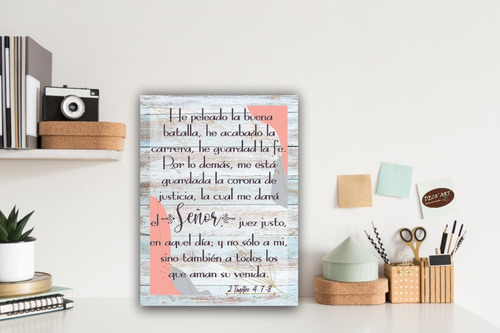 He peleado la buena
batalla, he acabado la
carrera, he guardad la fe.
Por lo demás, me está
guardada la corona de
justicia, la cual me dará
el Señor, juez justo,
en aquel día; y no sólo a mi,
sino también a todos los
que aman su venida.
2 Timoteo 4:7-8
DECO ART